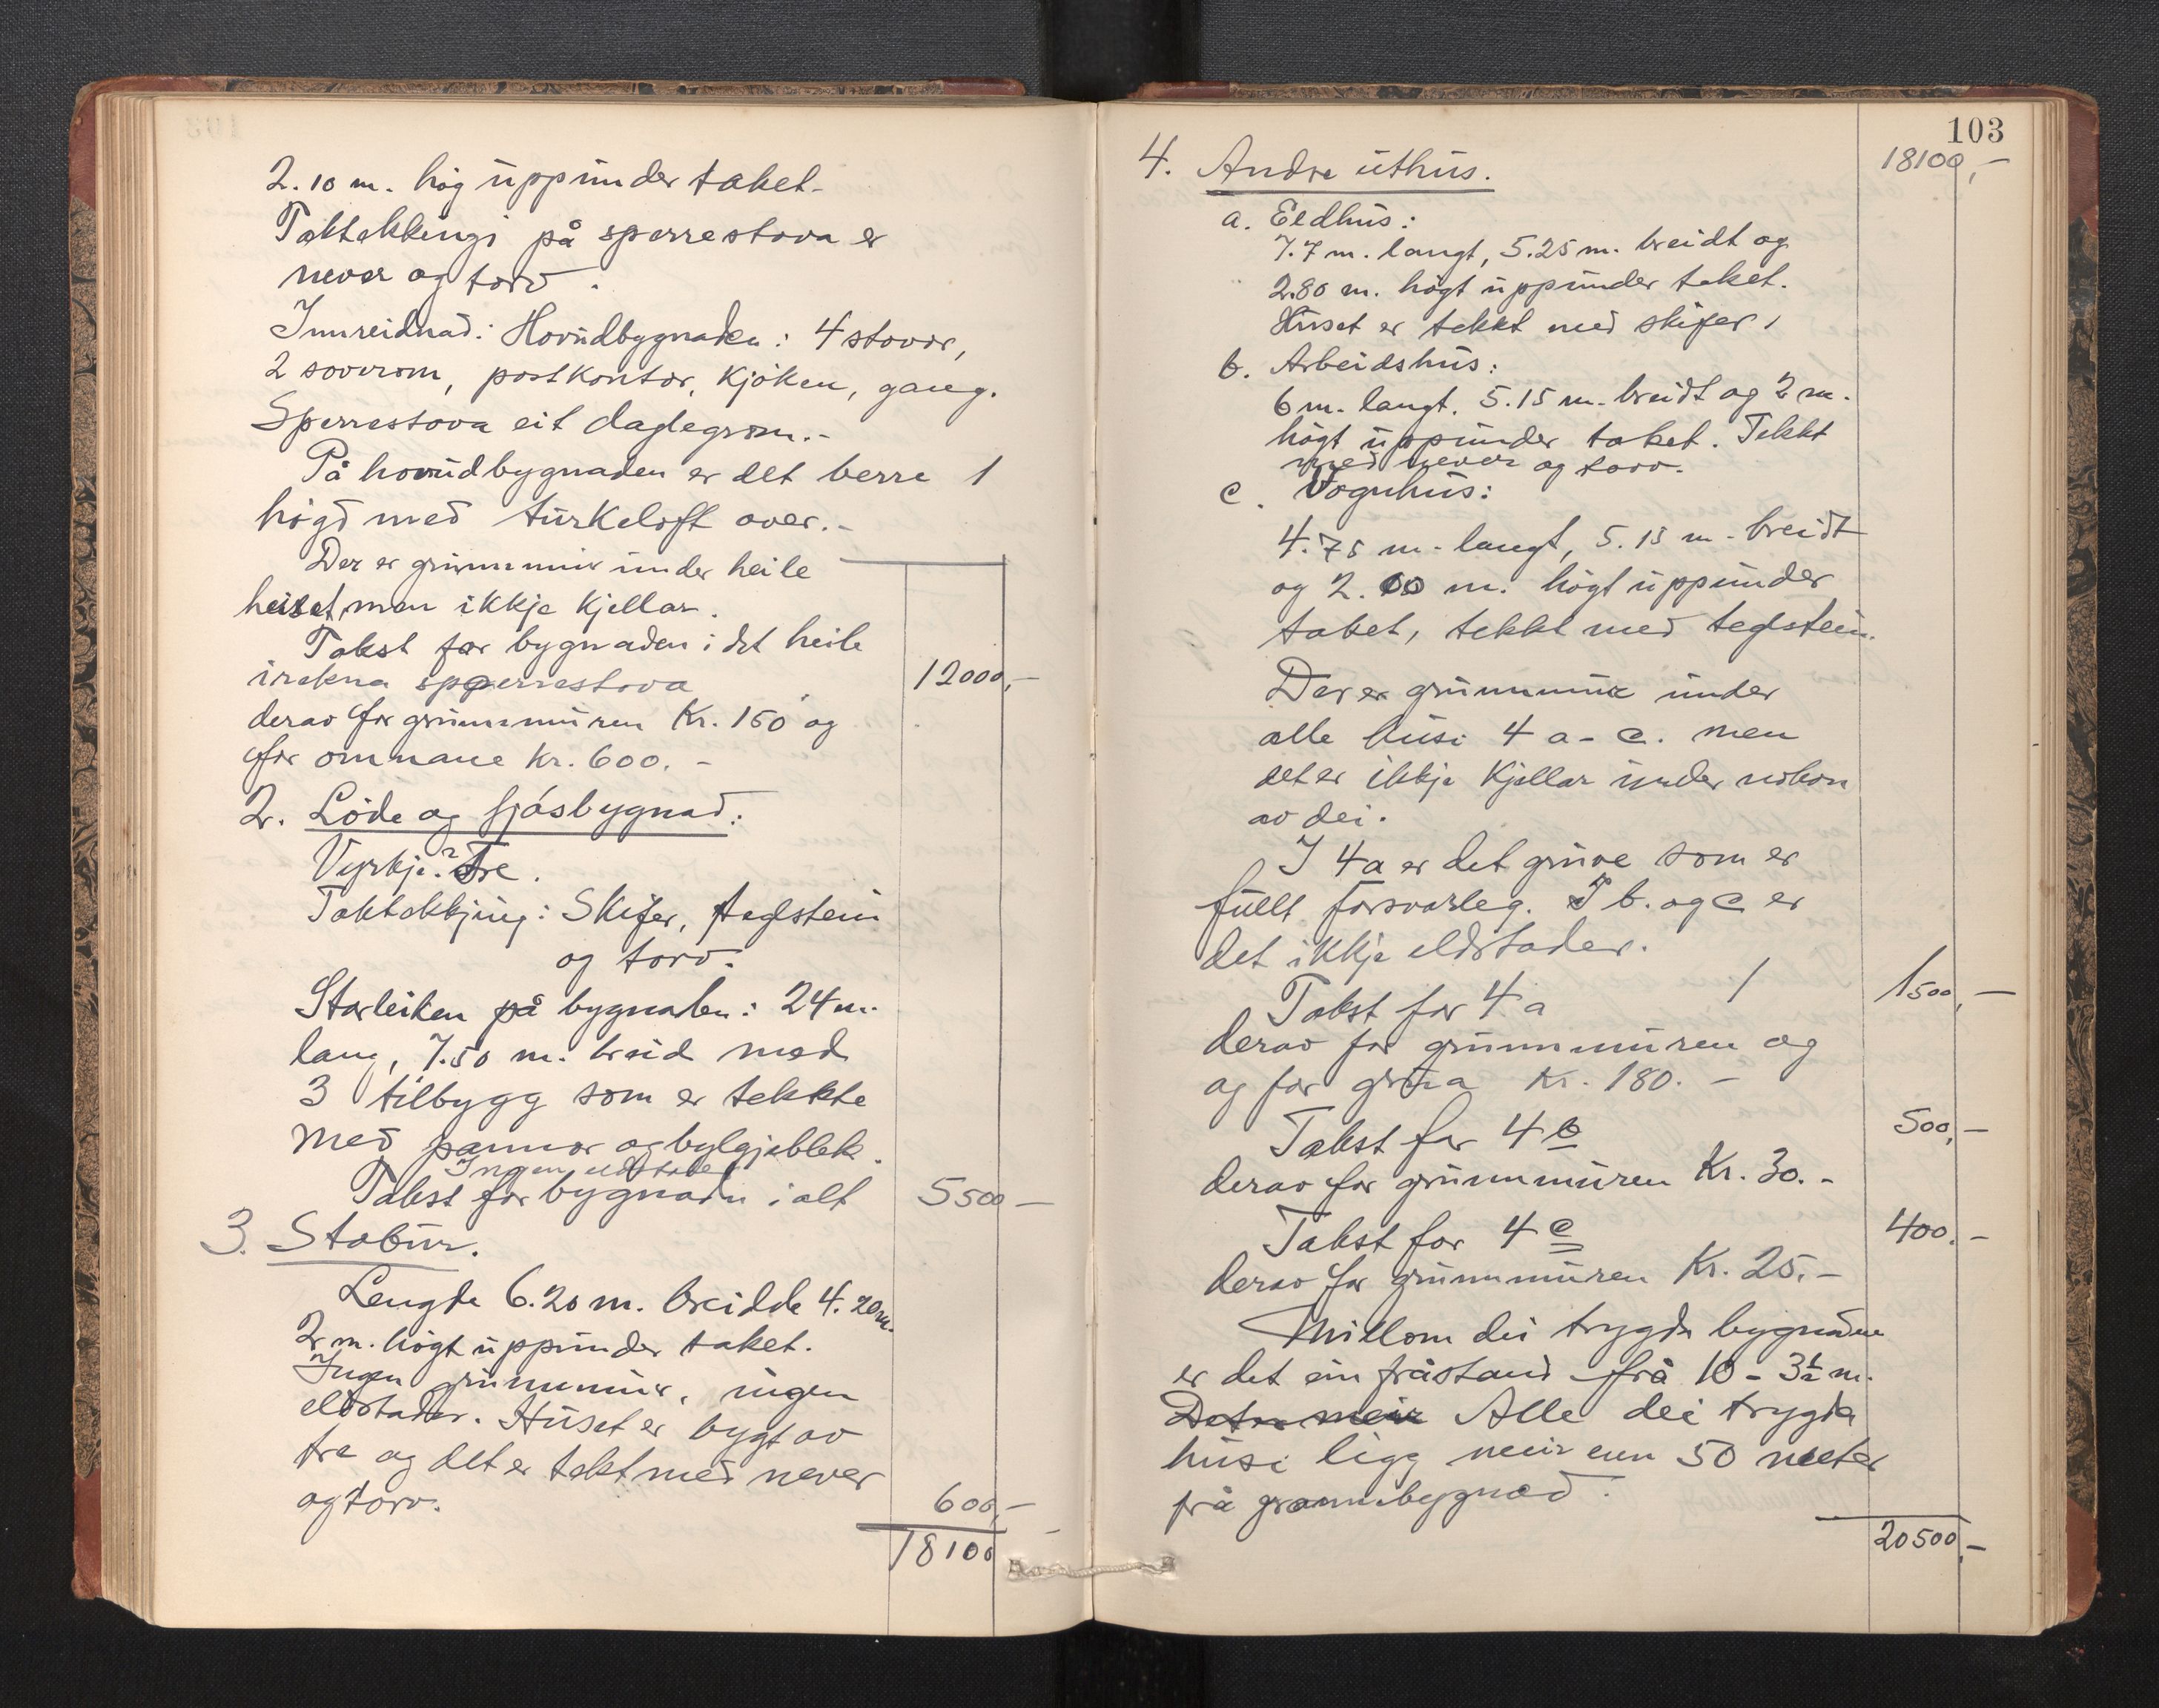 2.10 m. høg uppunder taket.
Taktekkingi på sperrestova er
never og torv.
Innreidnad: Hovudbygnaden: 4 stovor,
2 soverom, postkontor, kjøken, gang.
Sperrestova eit daglegrom.-
På hovudbygnaden er det berre 1
høgd med turkeloft over.-
Der er grunnmur under heile
huset, men ikkje kjellar.
Takst for bygnaden i det heile
irekna sperrestova 12000,-
derav for grunnmuren Kr. 150 og
for omnane Kr. 600.-
2. Løde og fjøsbygnad:
Vyrkje: Tre.
Taktekkjing: Skifer, teglstein
og torv.
Storleiken på bygnaden: 24 m.
lang, 7.50 m. breid med
3 tilbygg som er tekkte
med pannor og bylgjeblek.
Ingen eldstader
Takst for bygnaden i alt 5500-
3. Stabur.
Lengde 6.20 m. breidde 4.20 m.
2 m. høgt uppunder taket.
Ingen grunnmur, ingen
eldstader. Huset er bygt av
tre og det er tekt med never
og torv. 600,-
18100 -
103
18100,-
4. Andre uthus.
a. Eldhus:
7.7 m. langt, 5.25 m. breidt og
2.80 m. høgt uppunder taket.
Huset er tekkt med skifer,
b. Arbeidshus:
6 m. langt. 5.15 m. breidt og 2 m.
høgt uppunder taket. Tekkt
med never og torv.
c. Vognhus:
4.75 m. langt, 5.15 m. breidt
og 2.00 m. høgt uppunder
taket, tekkt med teglstein.
Der er grunnmur under
alle husi 4 a-c. men
det er ikkje kjellar under nokon
av dei.
I 4a er det gruve som er
fullt forsvarleg. I b. og c er
det ikkje eldstader.
Takst for 4 a / 1500,-
derav for grunnmuren og
og for gruva Kr. 180.-
Takst for 4 b 500,-
derav for grunnmuren Kr. 30.-
Takst for 4 c 400.-
derav for grunnmuren Kr. 25.-
Millom dei trygda bygnadne
er det ein fråstand frå 10 - 3½ m.
Det er meir Alle dei trygda
husi ligg meir enn 50 meter
frå grannebygnad.
20500,-